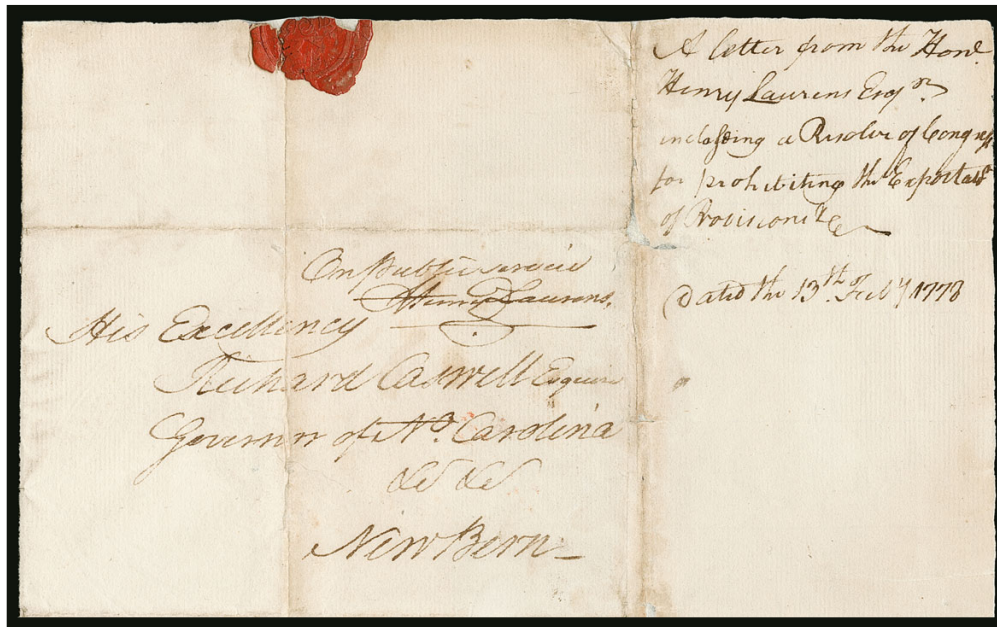 A letter from the Honl.
Henry Laurens Esqr.
inclosing a Resolve of Congress
for prohibiting the Exportatn
of Provisions &c
Dated the 13th. Feby 1778
On public service
Henry Laurens.
His Excellency
Richard Caswell Esquire
Governor of No. Carolina
&c &c
New Bern